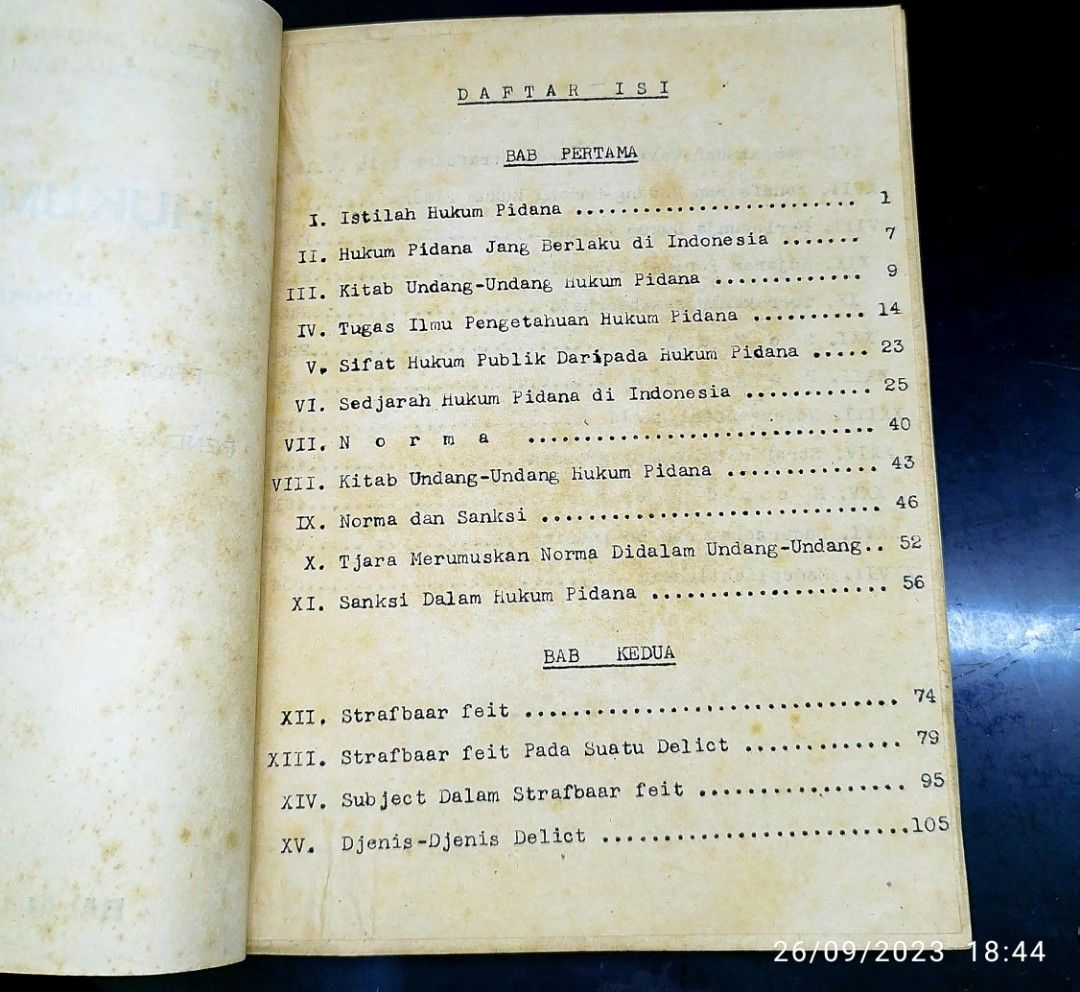 DAFTAR ISI
BAB PERTAMA
I. Istilah Hukum Pidana ........................ 1
II. Hukum Pidana Jang Berlaku di Indonesia ....... 7
III. Kitab Undang-Undang Hukum Pidana ............. 9
IV. Tugas Ilmu Pengetahuan Hukum Pidana .......... 14
V. Sifat Hukum Publik Daripada Hukum Pidana ..... 23
VI. Sedjarah Hukum Pidana di Indonesia ........... 25
VII. N o r m a .............................. 40
VIII. Kitab Undang-Undang Hukum Pidana ............. 43
IX. Norma dan Sanksi ............................. 46
X. Tjara Merumuskan Norma Didalam Undang-Undang.. 52
XI. Sanksi Dalam Hukum Pidana .................... 56
BAB KEDUA
XII. Strafbaar feit ................................ 74
XIII. Strafbaar feit Pada Suatu Delict .............. 79
XIV. Subject Dalam Strafbaar feit .................. 95
XV. Djenis-Djenis Delict ..........................105
26/09/2023 18:44